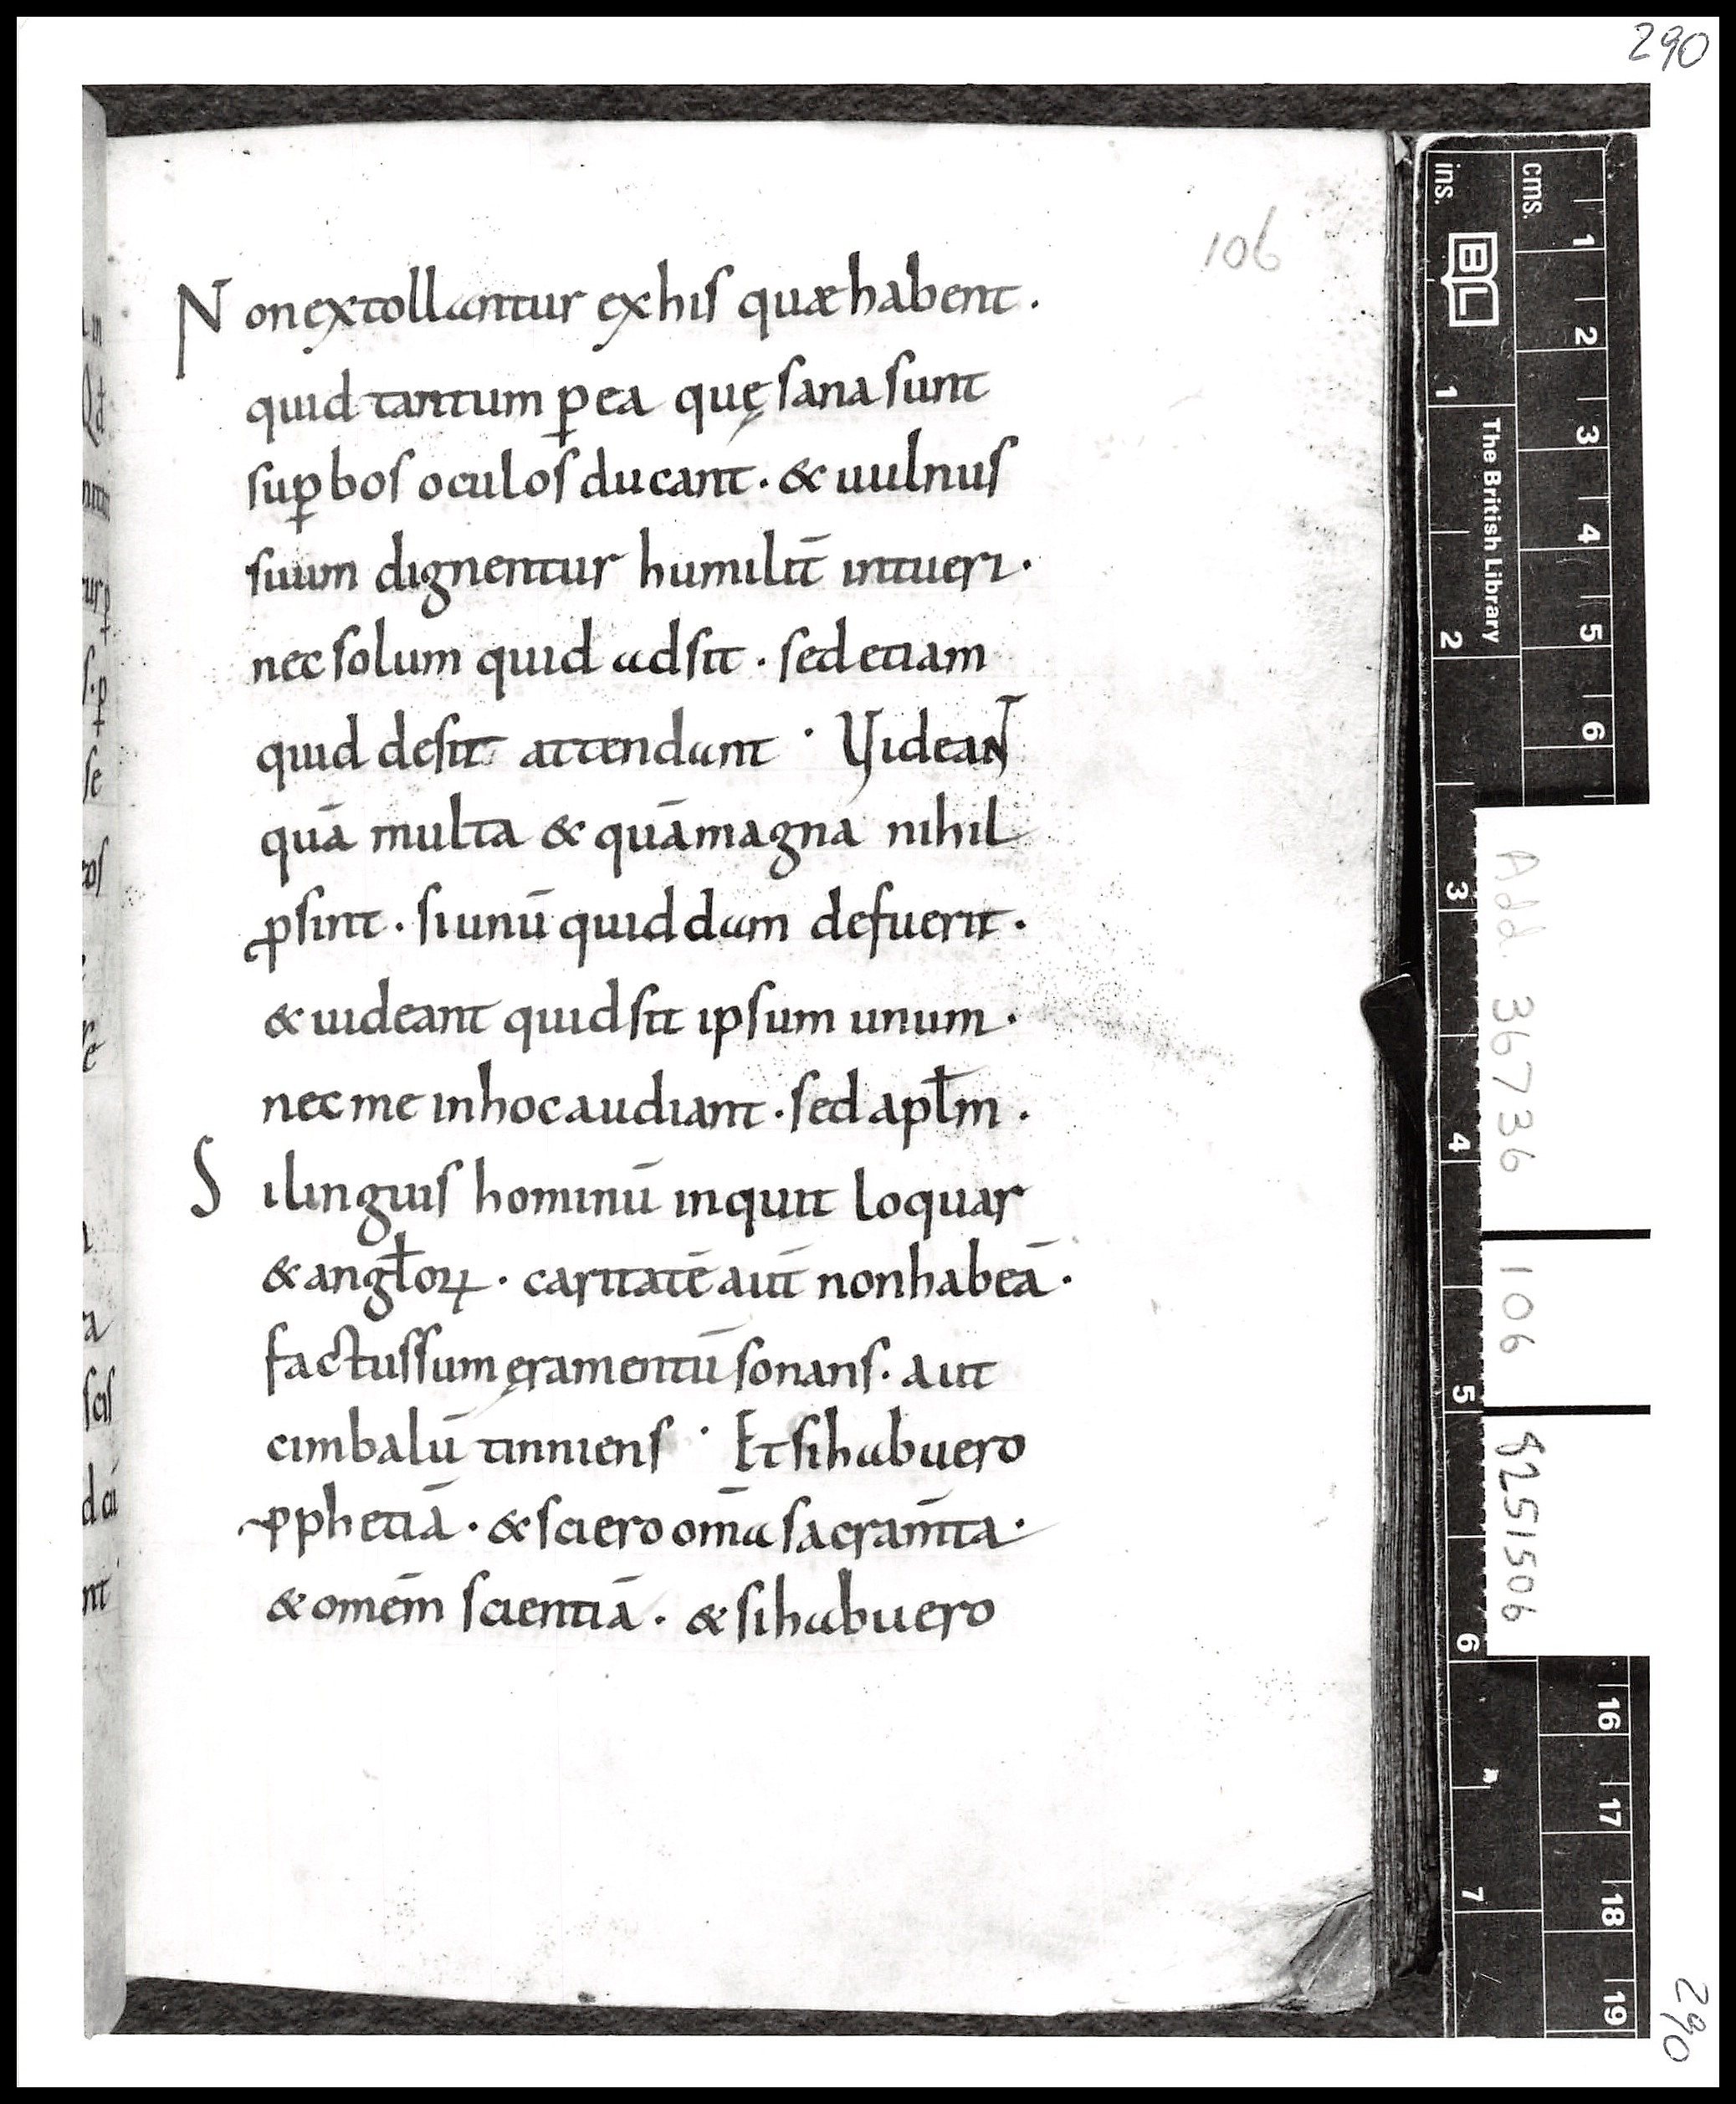 290
106
Non extollantur ex his quæ habent.
quid tantum ꝑ ea quę sana sunt
suꝑbos oculos ducant. & uulnus
suum dignentur humilit̄ intueri.
nec solum quid adsit. sed etiam
quid desit attendant · Videant̄
quā multa & quā magna nihil
ꝓsint. si unū quiddam defuerit.
& uideant quid sit ipsum unum.
nec me in hoc audiant. sed apłm.
Si linguis hominū inquit loquar
& angłoꝝ. caritatē aut̄ non habeā.
factus sum ęramentū sonans. aut
cimbalū tinniens · Et si habuero
ꝓphetiā. & sciero om̄a sacram̄ta.
& omēm scientiā. & si habuero
ins.
cms.
BL
The British Library
1
2
3
4
5
6
7
1
2
3
4
5
6
16
17
18
19
Add. 36736
106
8251506
290